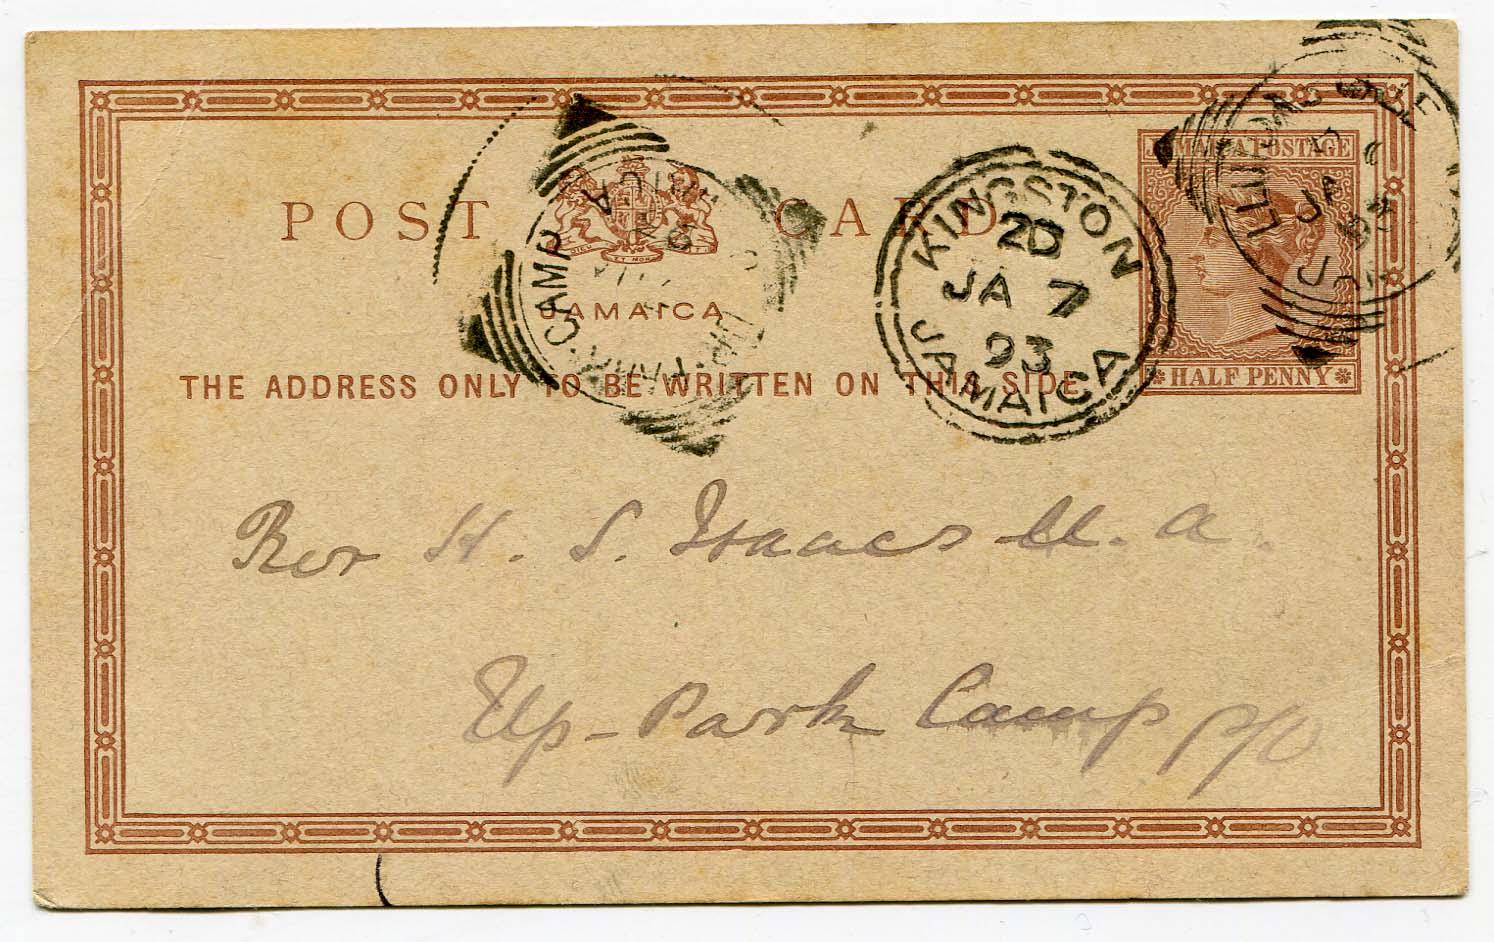 POST CARD
JAMAICA
JAMAICA POSTAGE
HALF PENNY
THE ADDRESS ONLY TO BE WRITTEN ON THIS SIDE
CAMP
KINGSTON
2D
JA 7
93
JAMAICA
JA
93
Rev H. S. Isaacs M. A.
Up-Park Camp P/O